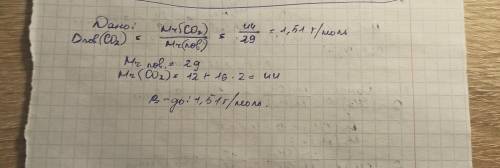 Дано:
Dпов(CO₂) = Mr(CO₂)/Mr(пов) = 44/29 = 1,51 г/моль
Mr пов. = 29
Mr(CO₂) = 12 + 16 · 2 = 44
В-дь: 1,51 г/моль.